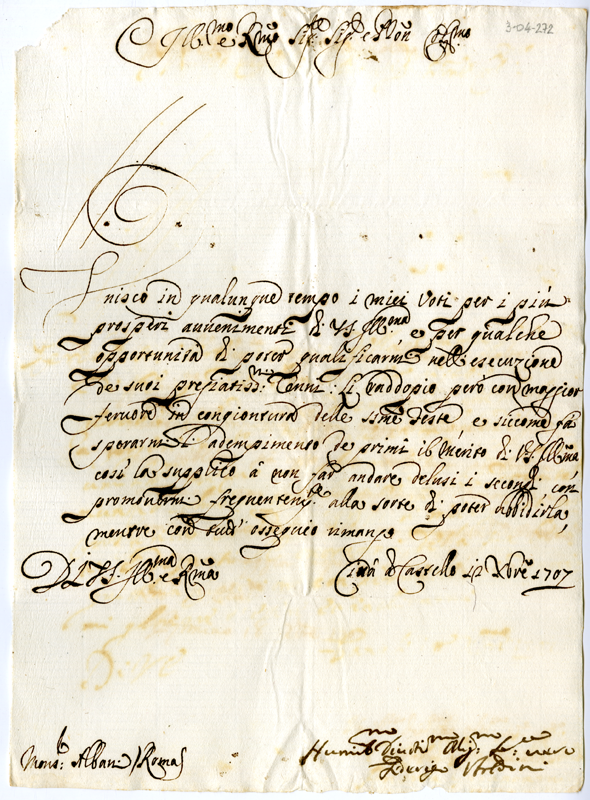 3-04-272
Ill.mo e R.mo Sig.r Sig.r e Pron Col.mo
Unisco in qualunque tempo i miei Voti per i più
prosperi avvenimenti di V.S. Ill.ma, e per qualche
opportunità di poter qualificarmi nell'esecuzione
de suoi pregiatiss.mi Cenni: li raddopio però con maggior
fervore in congiontura delle S.me feste, e siccome fà
sperarmi l'adempimento de primi il merito di V.S. Ill.ma
così la supplico à non far andare delusi i secondi con
promovermi frequentem.te alla sorte di poter ubbidirla,
mentre con tutt' ossequio rimango
Di V.S. Ill.ma e R.ma
Città di Castello 12 Xbre 1707
Mons.r Albani / Roma
Humil.mo Devot.mo Obl.mo Se.re vero